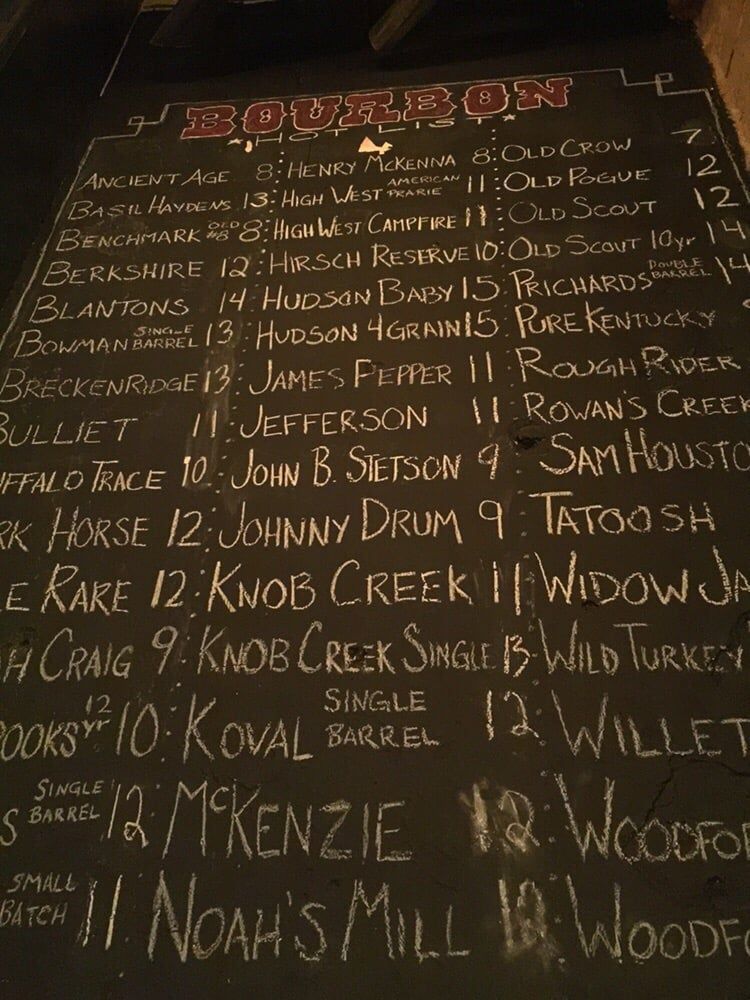 BOURBON
*HOT LIST*
ANCIENT AGE 8
BASIL HAYDENS 13
BENCHMARK OLD #8 8
BERKSHIRE 12
BLANTONS 14
BOWMAN SINGLE BARREL 13
BRECKENRIDGE 13
BULLIET 11
FFALO TRACE 10
RK HORSE 12
LE RARE 12
H CRAIG 9
OOKS 12 YR 10
S SINGLE BARREL 12
SMALL BATCH 11
HENRY MCKENNA 8
HIGH WEST AMERICAN PRARIE 11
HIGH WEST CAMPFIRE 11
HIRSCH RESERVE 10
HUDSON BABY 15
HUDSON 4 GRAIN 15
JAMES PEPPER 11
JEFFERSON 11
JOHN B. STETSON 9
JOHNNY DRUM 9
KNOB CREEK 11
KNOB CREEK SINGLE 13
KOVAL SINGLE BARREL 12
MCKENZIE 12
NOAH'S MILL 12
OLD CROW 7
OLD POGUE 12
OLD SCOUT 12
OLD SCOUT 10yr 14
PRICHARDS DOUBLE BARREL 14
PURE KENTUCKY
ROUGH RIDER
ROWAN'S CREEK
SAM HOUSTO
TATOOSH
WIDOW JA
WILD TURKEY
WILLET
WOODFO
WOODFO